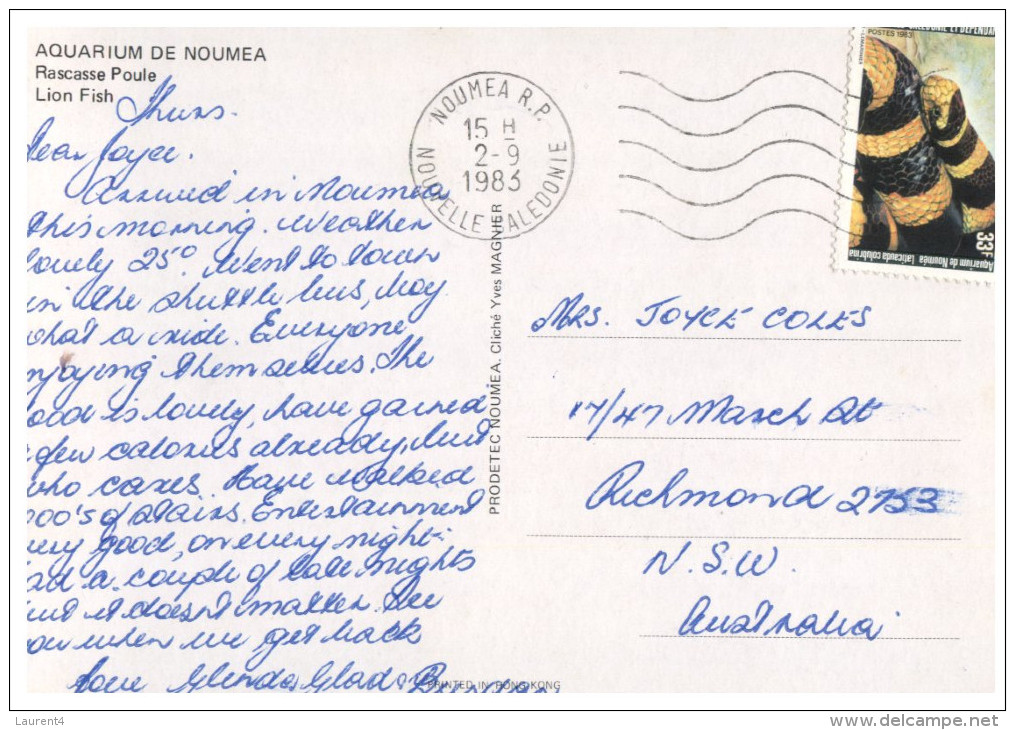 AQUARIUM DE NOUMEA
Rascasse Poule
Lion Fish
Thurs.
Dear Joyce.
Arrived in Noumea
this morning. Weather
lovely 25º. Went to town
in the shuttle bus, boy
what a ride. Everyone
enjoying themselves. The
food is lovely, have gained
a few calories already, but
who cares. Have walked
000's of stairs. Entertainment
very good, on every night.
had a couple of late nights
but it doesn't matter. See
you when we get back
Love Glenda, Glad,
NOUMEA R.P.
15 H
2-9
1983
NOUVELLE CALEDONIE
PRODETEC NOUMEA. Cliché Yves MAGNIER
CALEDONIE ET DEPENDAN
POSTES 1983
33F
Aquarium de Nouméa Laticauda colubrina
MRS. JOYCE COLES
17/47 March St
Richmond 2753
N.S.W.
Australia
PRINTED IN HONG KONG
Laurent4
www.delcampe.net